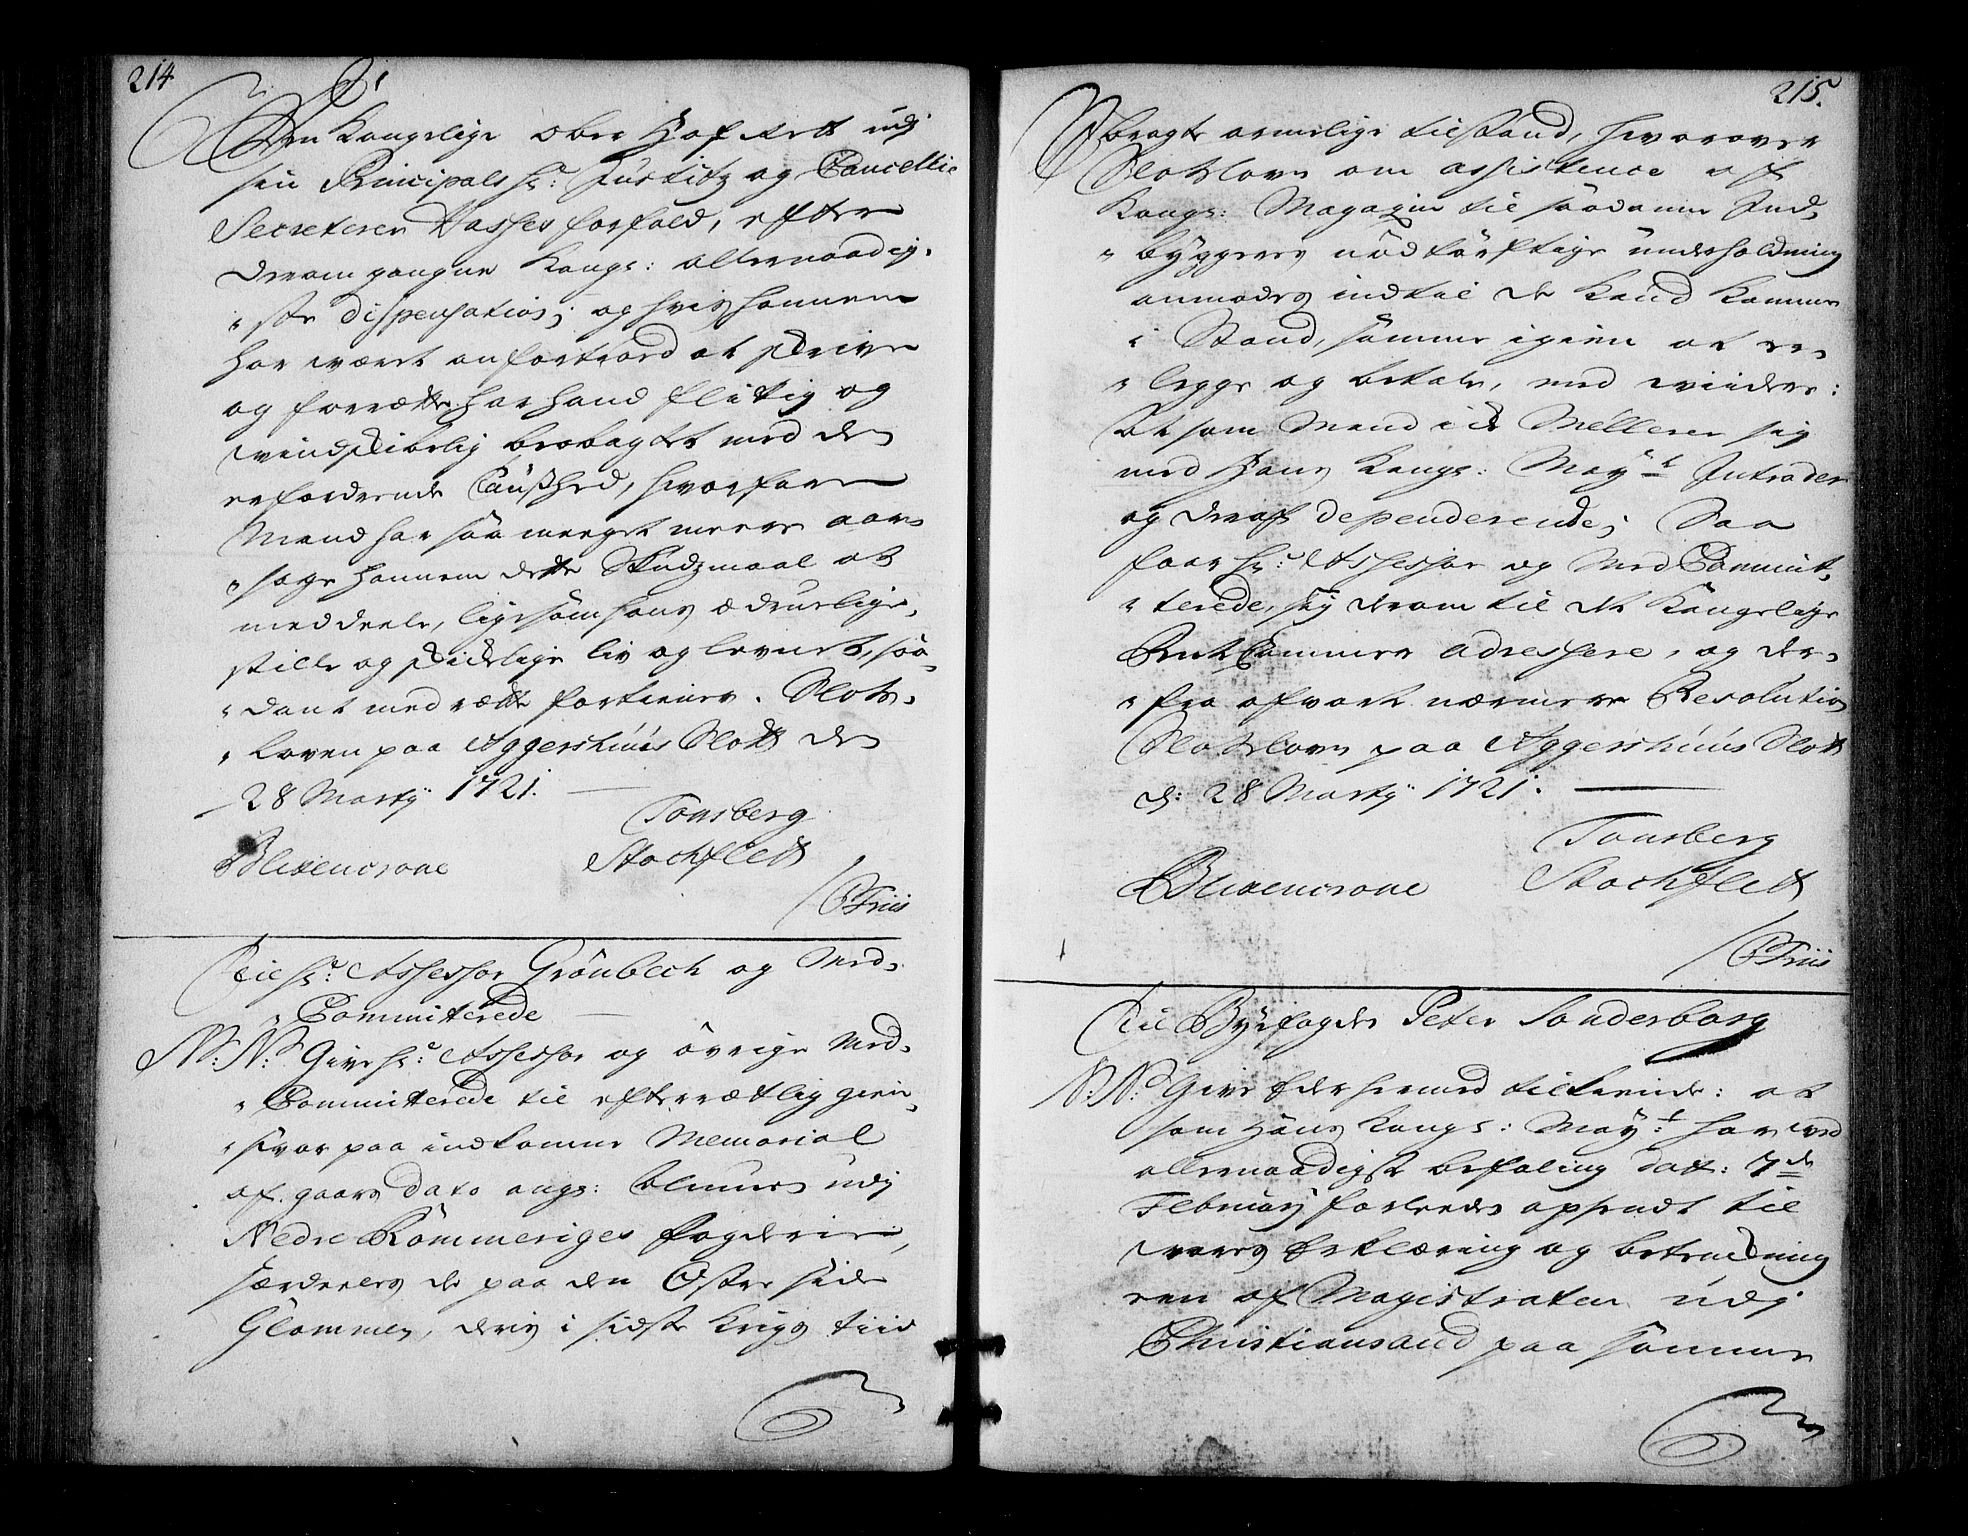 214
Den Kongelige Ober Hof Rett udj
sin Principals Hr: Justitz og Cancellie
Secreterer Wasses forfald, efter
derom gangne Kongs: allernaadig,
ste dispensation; og hvis hannem
har været anfortroed at skrive
og forrætte, har hand flitig og
vindskibelig beobagtet med den
erfordrende Taushed, hvorfore
Mand har saa meeget meere aar,
sage hannem dette Skudzmaal at
meddeele, ligesom hans ædruelige,
stille og skickelige liv og levnet, saa,
dant med rætte fortiener. Slots,
Loven paa Aggershuus Slott den
28 Martij 1721.
Tonsberg
Blixencrone Stochflett
/ C Friis
Til Hr: Assessor Grönbech og Med,
Committerede
N: N: Give Hr: Assessor og övrige Med,
Committerede til efterrætlig gien,
svar paa indkomne Memorial
af gaars dato angs: Almuen udj
Nedre Rommeriges fogderie,
særdeeles de paa den Østre side
Glommen, deris i sidste Krigs tiid
215.
bragte armelige tilstand, hvorover
Slotzloven om assistence af
Kongs: Magazin til saadanne Ind,
byggeres nödtörftige underholdning
anmodes indtil de kand komme
i Stand, samme igien at er,
legge og betale, med viidere:
At som Mand icke Mellerer sig
med Hans Kongs: May:t Intrader
og deraf dependerende; Saa
faar Hr: Assessor og Med Commit,
terede, sig derom til det Kongelige
Rente Cammer adressere, og der,
fra afvarte nærmere Resolution
Slotzloven paa Aggershuus Slott
d: 28 Martij 1721.
Tonsberg
Blixencrone Stochflett
/ C Friis
Til Byefogden Peter Sonderborg
N: N: Give Eder hermed tilkiende: at
som Hans Kongs: May:t har ved
allernaadigst befaling dat: 7de
Februarij forleeden opsendt til
vores Erklæring og betenckning
een af Magistraten udj
Christiansand paa samme